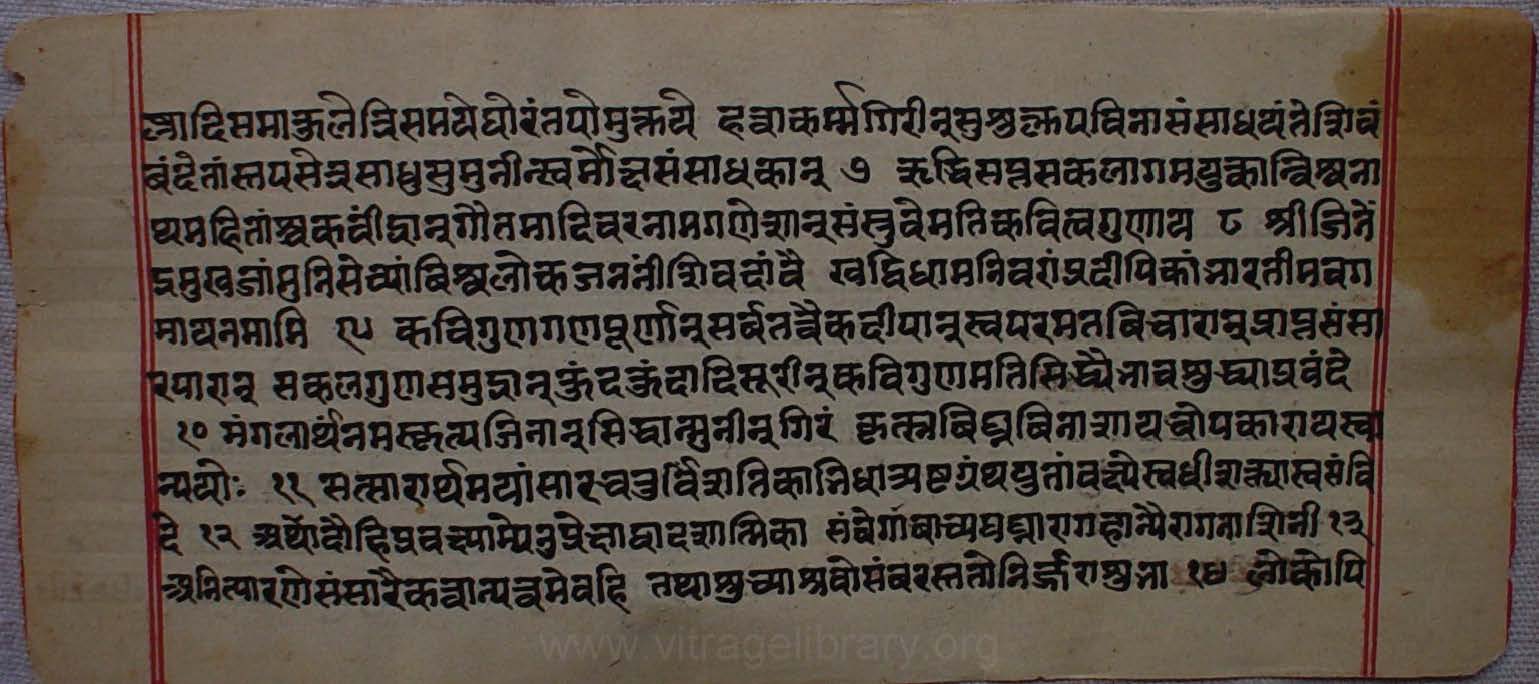 ज्रादिसमाकुलेत्रिसमयेघोरंतपोमुक्तये हत्वाकर्म्मगिरीन्सुशुक्लपविनासंसाधयंतेशिवं
वंदेतांस्तपसेत्रसाधुसुमुनीन्स्वर्मोक्षसंसाधकान् ७ ऋद्धिसप्तसकलागमयुक्तान्विश्वना
थमहितांश्चकवींद्रान्गौतमादिवरनामगणेशान्संस्तुवेमतिकवित्वगुणाय ८ श्रीजिनें
द्रमुखजांमुनिसेव्यांविश्वलोकजननींशिवदांवै खद्विधामनिवरांप्रदीपिकांभारतीमवग
मायनमामि ९५ कविगुणगणपूर्णान्सर्वतत्वैकदीपान्स्वपरमतविचारान्प्राप्तसंसा
रपारान् सकलगुणसमुद्रान्कुंदकुंदादिसूरीन्कविगुणमतिसिद्ध्यैभावशुद्ध्याप्रवंदे
१० मंगलार्थंनमस्कृत्यजिनान्सिद्धान्मुनीन्गिरं कृत्स्नविघ्नविनाशायचोपकारायस्वा
न्ययोः ११ सत्सारार्थमयांसारचतुर्विंशतिकाभिधांअष्टग्रंथयुतांवक्ष्येस्वधीशक्त्यास्वसंवि
दे १२ अथादौहिप्रवक्ष्याम्येनुप्रेक्षाद्वादशात्मिका संवेगांबाच्यघघ्नारागहान्यैरागनाशिनी १३
अनित्यारणेसंसारैकत्वान्यत्वमेवहि तथाशुच्याश्रवोसंवरस्ततोनिर्ज्जराशुभा १४ लोकोपि
www.vitragelibrary.org